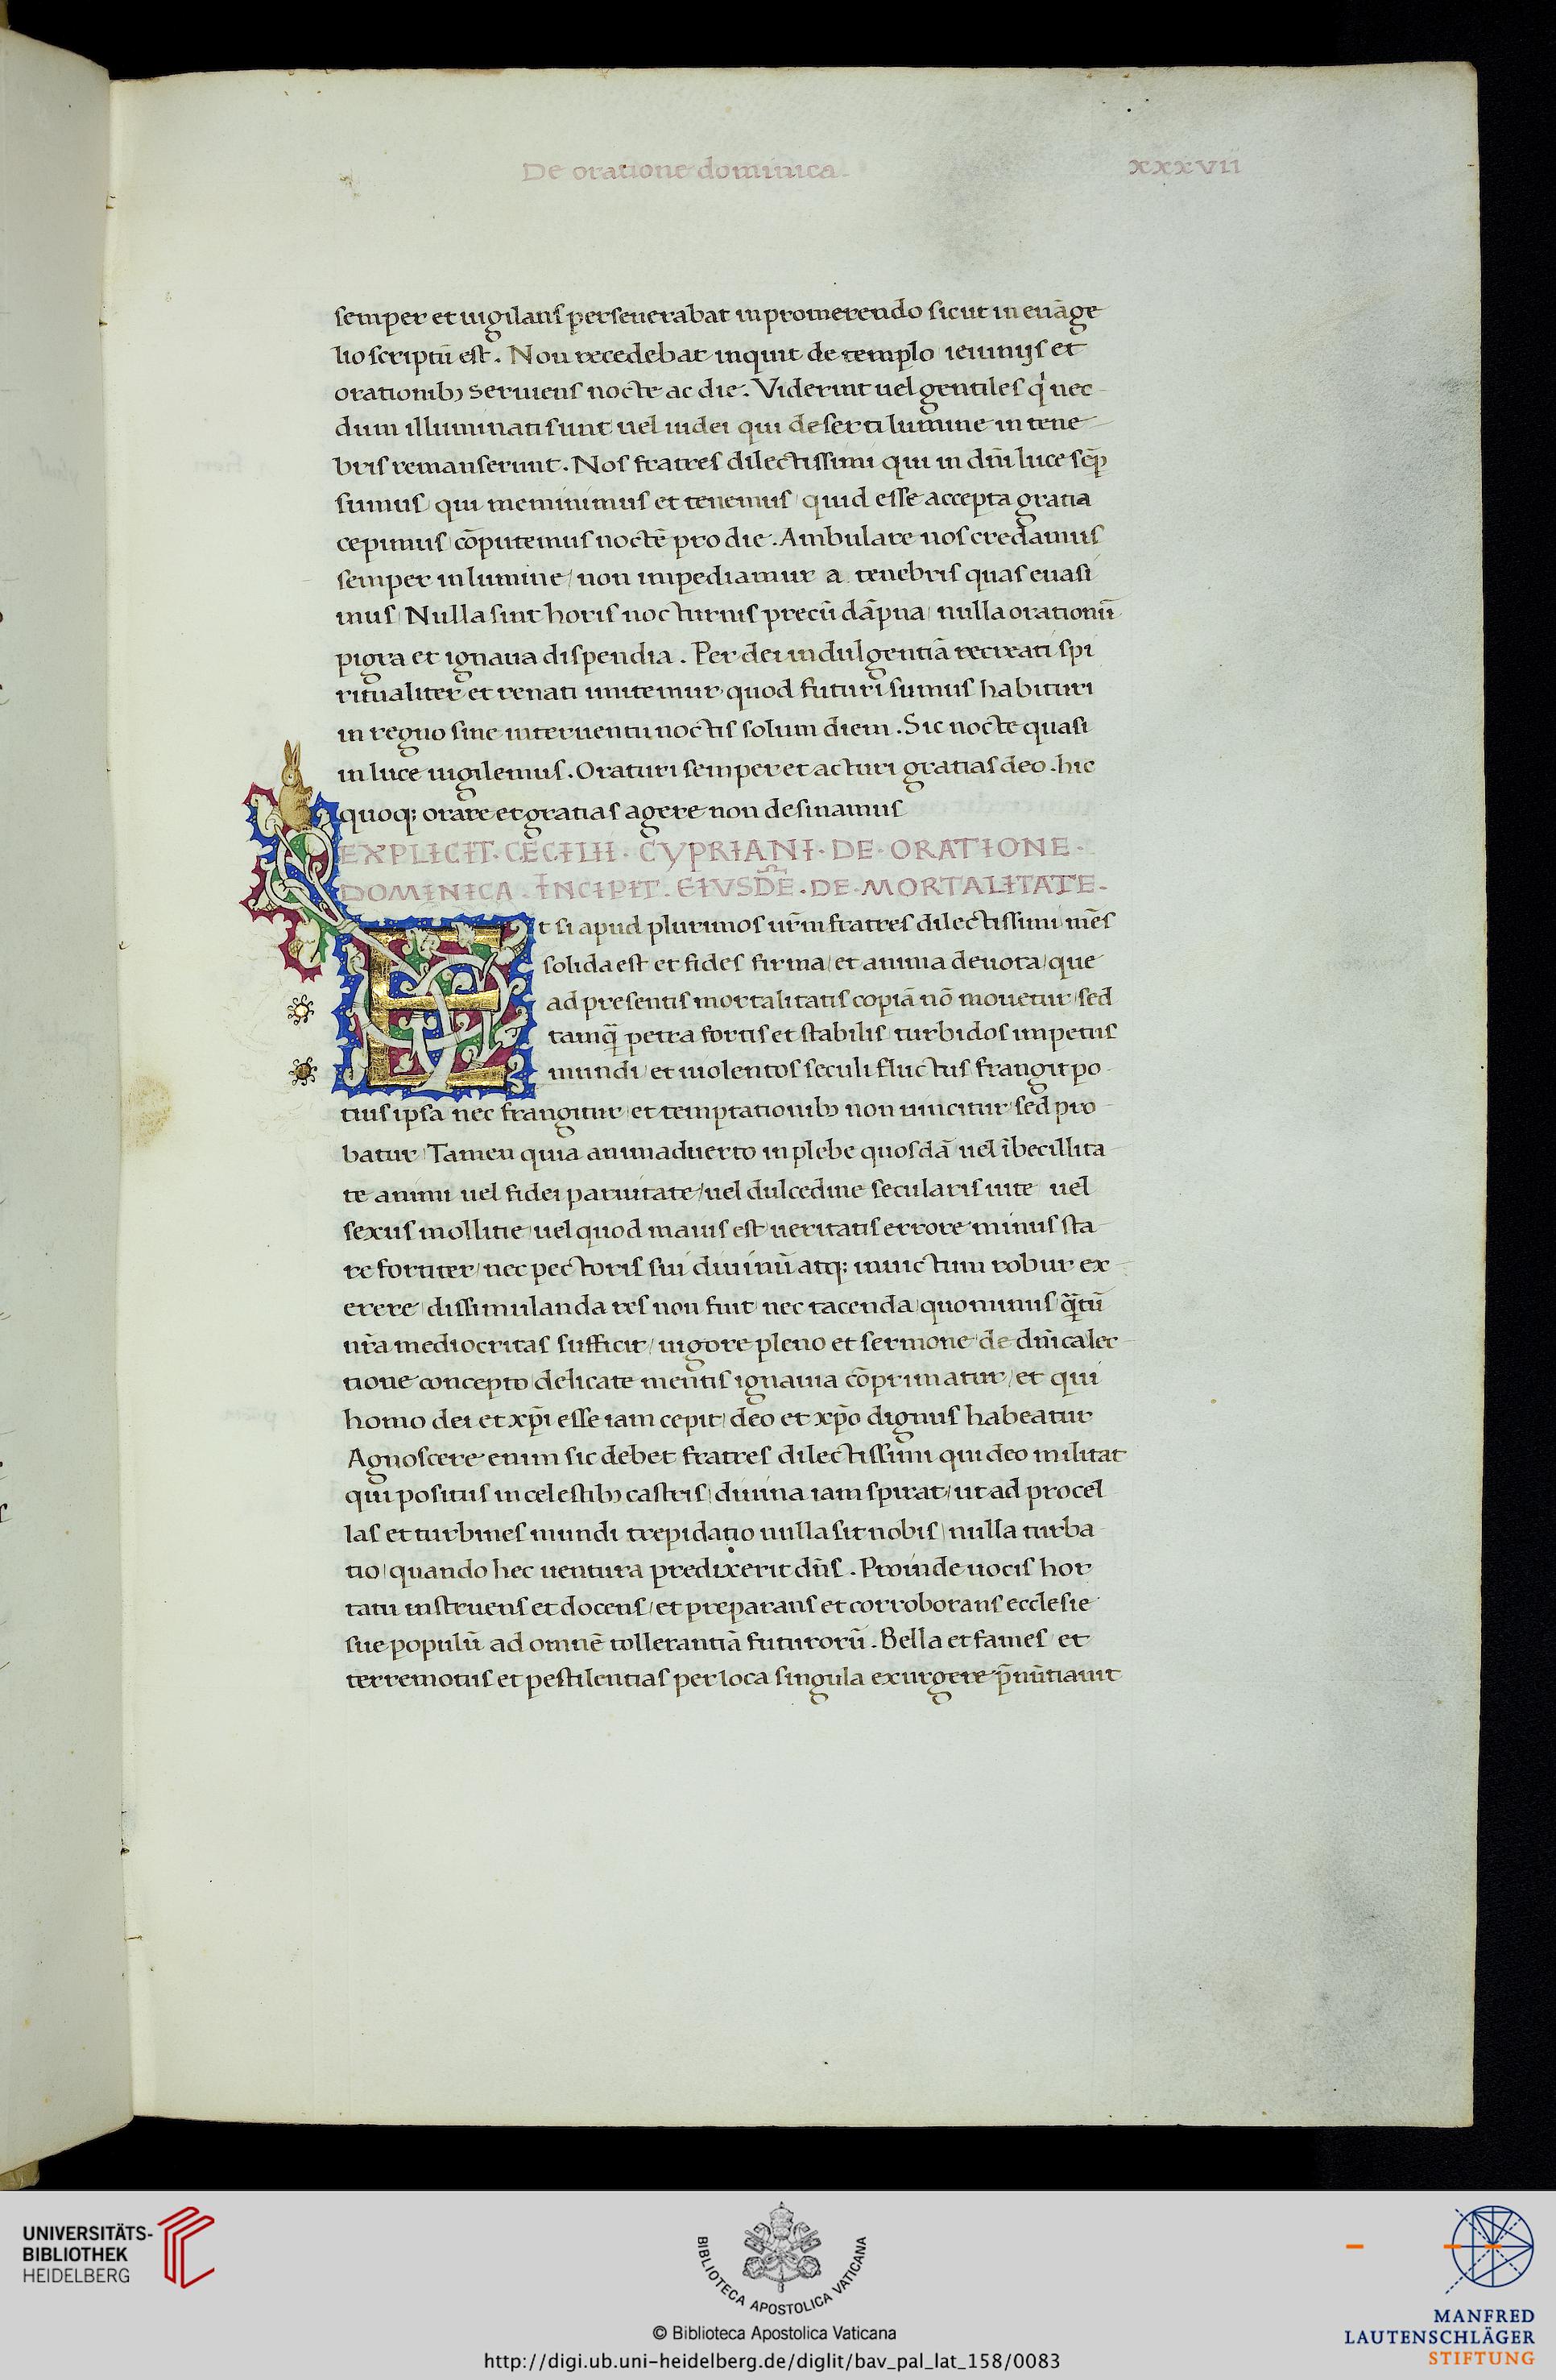 De oratione dominica
xxxvii
semper et uigilans perseuerabat in promerendo sicut in euāge
lio scriptū est. Non recedebat inquit de templo ieiunijs et
orationibꝫ seruiens nocte ac die. Viderint uel gentiles q nec
dum illuminati sunt uel iudei qui deserti lumine in tene
bris remanserunt. Nos fratres dilectissimi qui in dnī luce sēp
sumus/ qui meminimus et tenemus/ quid esse accepta gratia
cepimus/ cōputemus noctē pro die. Ambulare nos credamus
semper in lumine/ non impediamur a tenebris quas euasi
mus/ Nulla sint horis nocturnis precū dāpna/ nulla orationū
pigra et ignaua dispendia. Per dei indulgentiā recreati spi
ritualiter et renati imitemur quod futuri sumus habituri
in regno sine interuentu noctis solum diem. Sic nocte quasi
in luce uigilemus. Oraturi semper et acturi gratias deo. hic
quoq; orare et gratias agere non desinamus
EXPLICIT. CECILII. CYPRIANI. DE ORATIONE.
DOMINICA. INCIPIT. EIVSDĒ. DE. MORTALITATE.
Et si apud plurimos ur̄m fratres dilectissimi mēs
solida est et fides firma/ et anima deuota/ que
ad presentis mortalitatis copiā nō mouetur/ sed
tamq̄ petra fortis et stabilis turbidos impetus
mundi/ et uiolentos seculi fluctus frangit po
tius ipsa nec frangitur/ et temptationibꝫ non uincitur/ sed pro
batur/ Tamen quia animaduerto in plebe quosdā uel ībecillita
te animi uel fidei paruitate/ uel dulcedine secularis uite uel
sexus mollitie/ uel quod maius est/ ueritatis errore minus sta
re fortiter/ nec pectoris sui diuinū atq; inuictum robur ex
erere/ dissimulanda res non fuit/ nec tacenda/ quominus q̄tū
nr̄a mediocritas sufficit/ uigore pleno et sermone de dnīca lec
tione concepto/ delicate mentis ignauia cōprimatur/ et qui
homo dei et xp̄i esse iam cepit/ deo et xp̄o dignus habeatur
Agnoscere enim sic debet fratres dilectissimi qui deo militat
qui positus in celestibꝫ castris/ diuina iam spirat/ ut ad procel
las et turbines mundi trepidatio nulla sit nobis/ nulla turba
tio/ quando hec uentura predixerit dn̄s. Proinde uocis hor
tatu instruens et docens/ et preparans et corroborans ecclesie
sue populū ad omnē tollerantiā futurorū. Bella et fames et
terremotus et pestilentias per loca singula exurgere p̄nūtiauit
UNIVERSITÄTS-
BIBLIOTHEK
HEIDELBERG
BIBLIOTECA APOSTOLICA VATICANA
© Biblioteca Apostolica Vaticana
http://digi.ub.uni-heidelberg.de/diglit/bav_pal_lat_158/0083
MANFRED
LAUTENSCHLÄGER
STIFTUNG